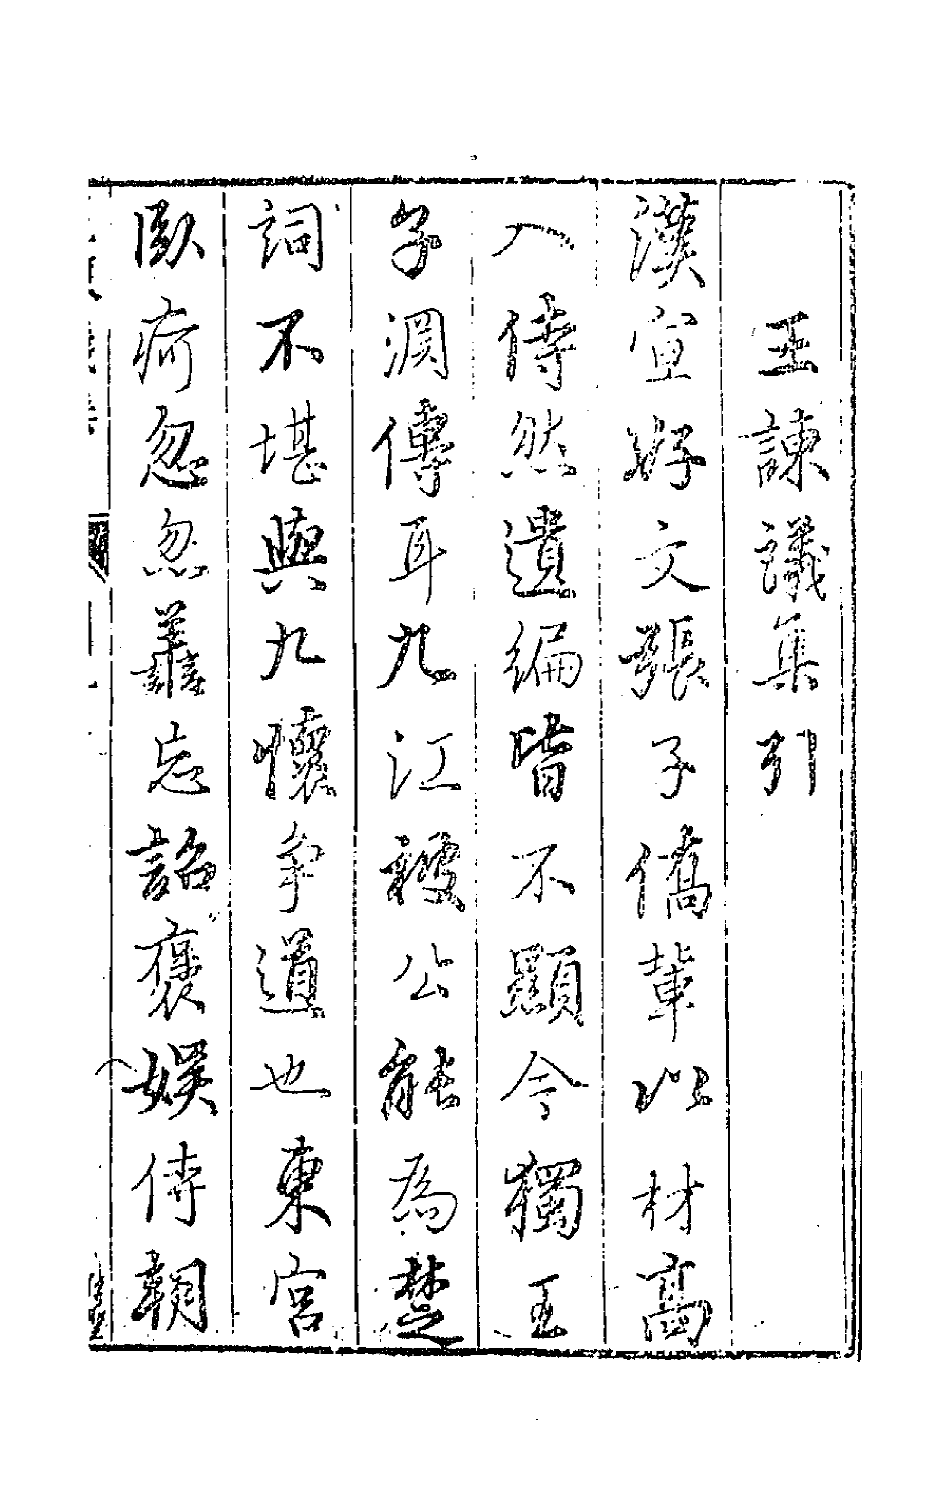 王諫議集引
漢宣好文張子僑輩以材高
入侍然遺編皆不顯今獨王
子淵傳耳九江被公能為楚
詞不堪與九懷爭道也東宮
臥疴忽忽善忘詔褒娛侍朝